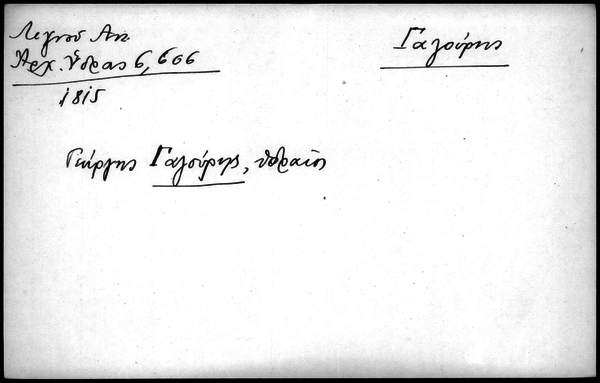 Λιγνού Αντ.
Αρχ. Ύδρας 6, 606
1815
Γαζούρης
Γεώργης Γαζούρης, υδραίος